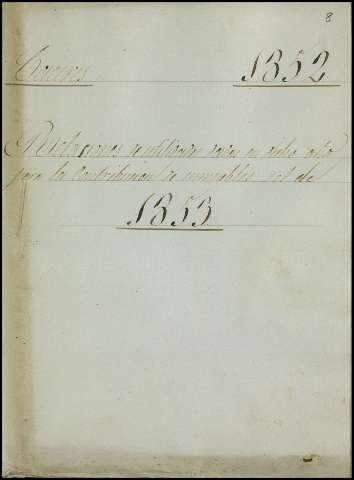 8
Caceres 1852
Relaciones de utilidades dadas en dicho año
para la Contribucion de inmuebles del de
1853